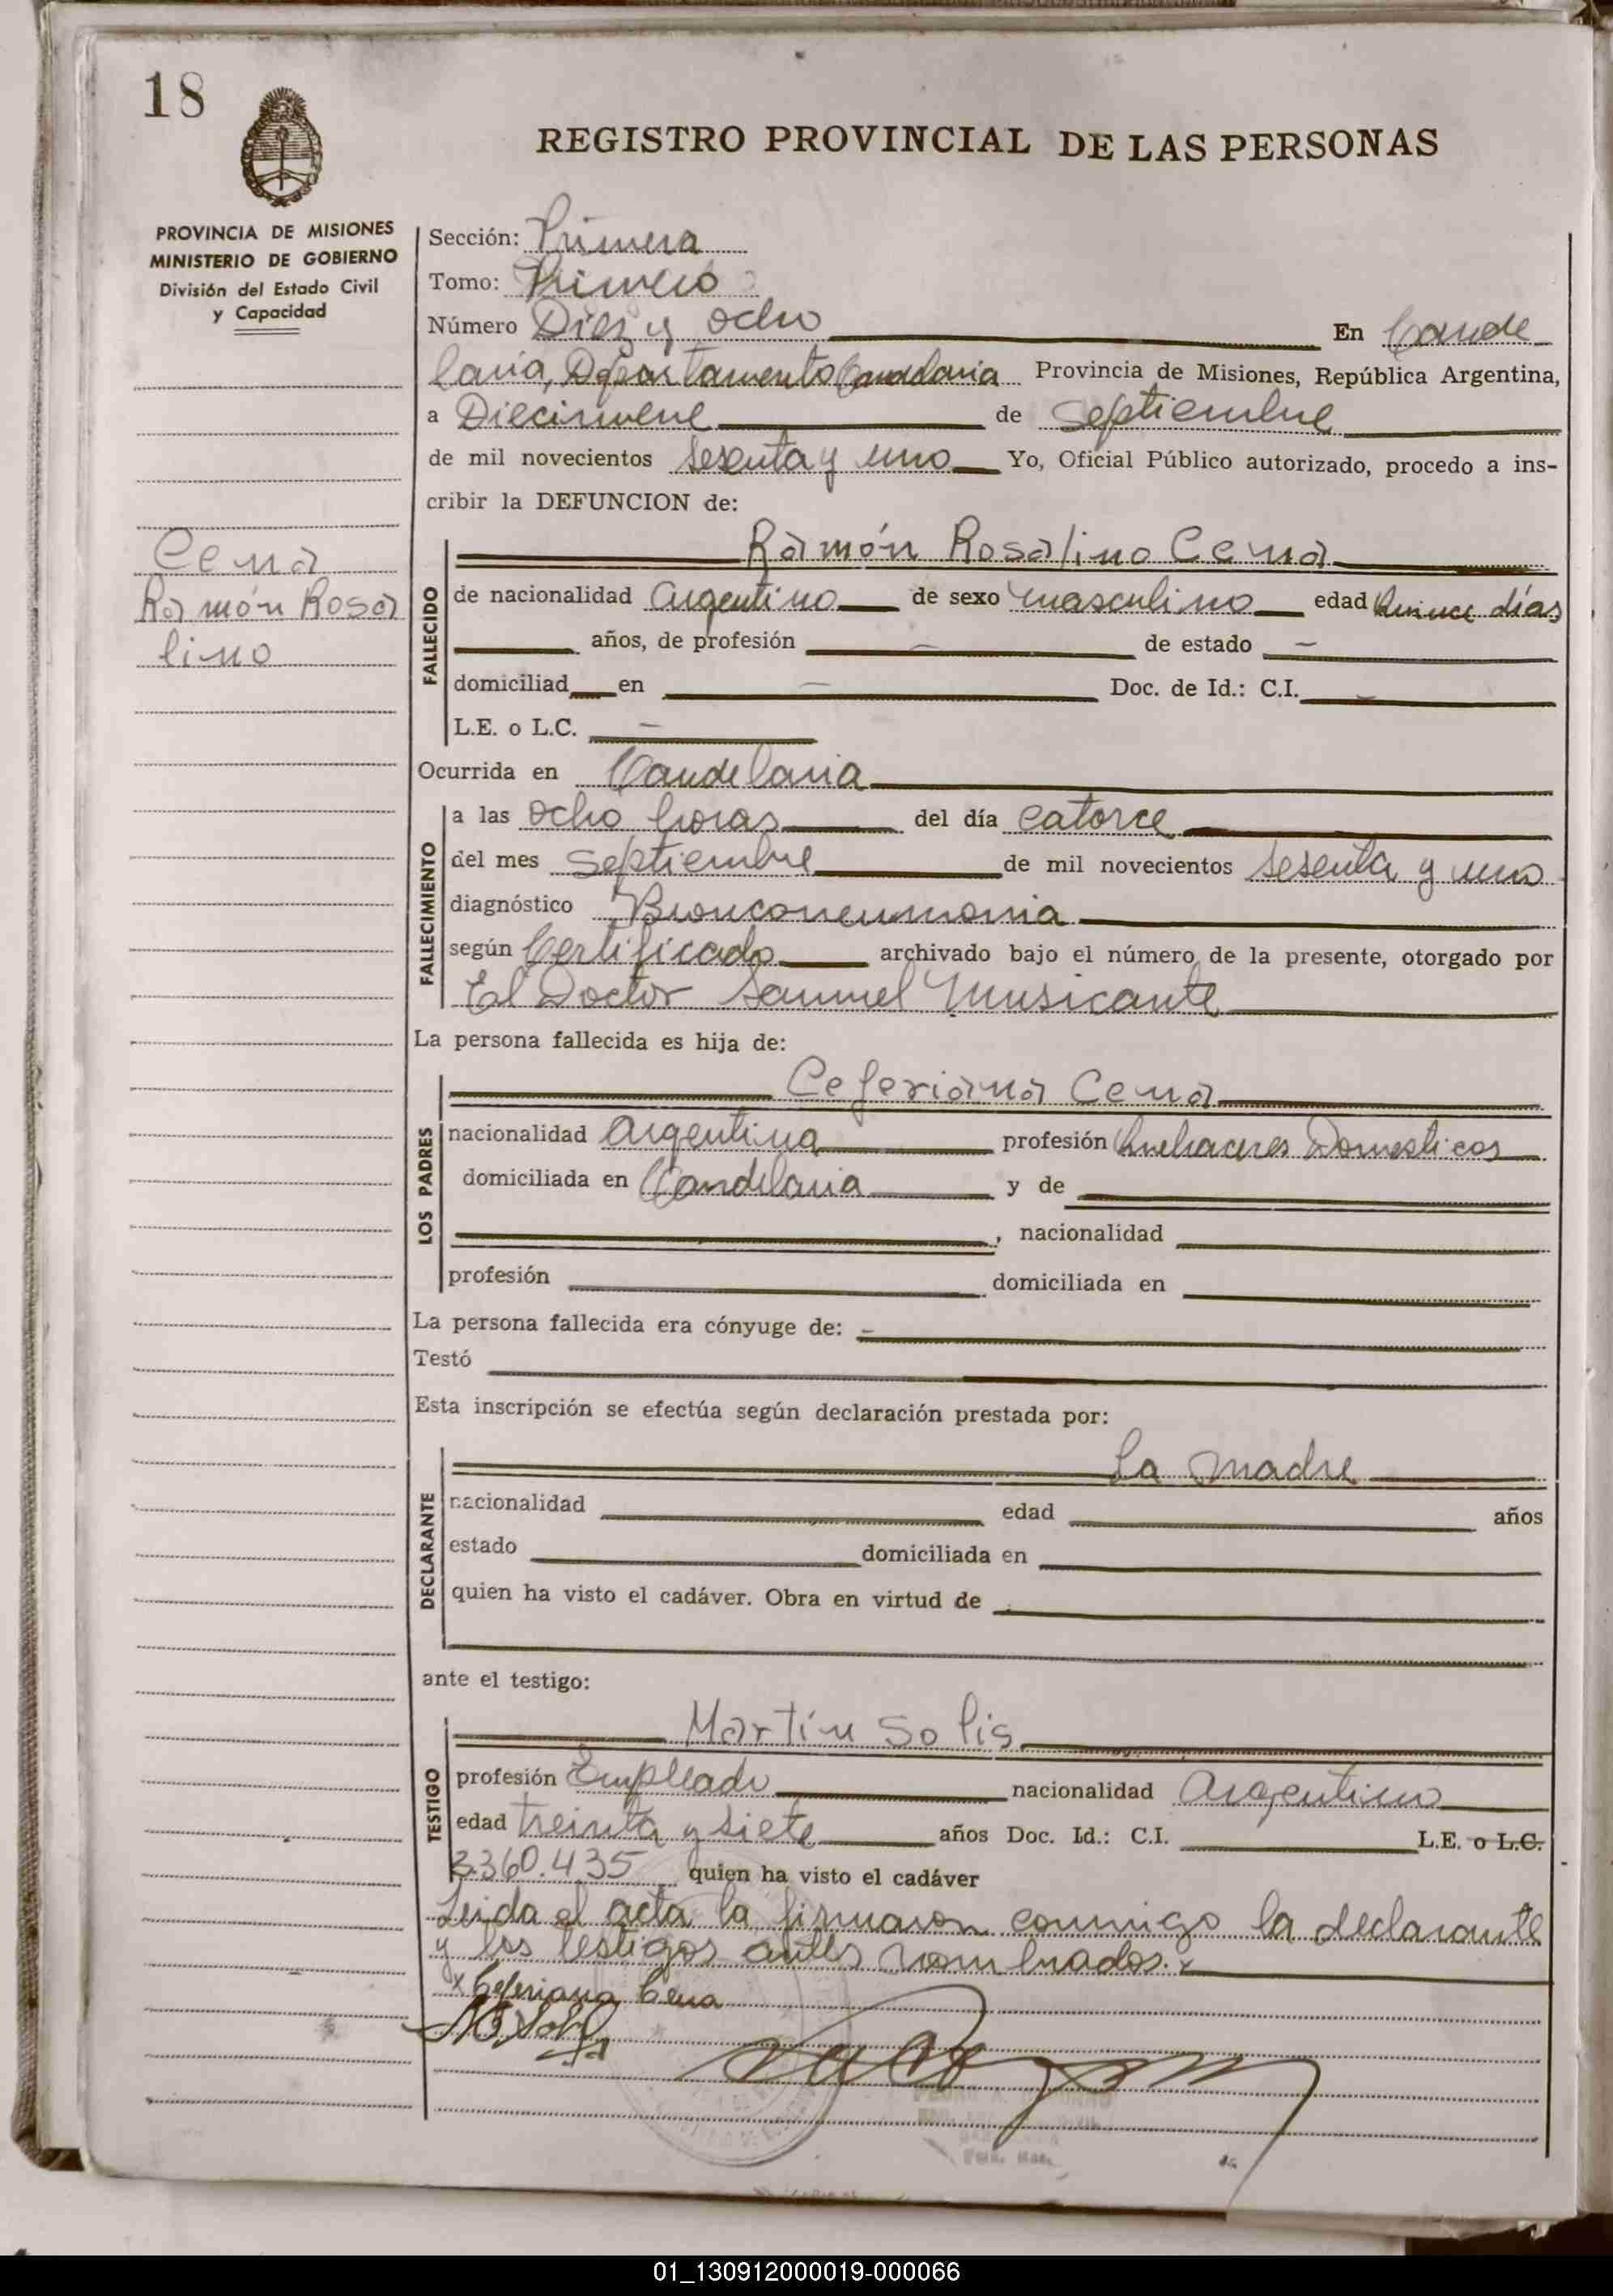 18
REGISTRO PROVINCIAL DE LAS PERSONAS
PROVINCIA DE MISIONES
MINISTERIO DE GOBIERNO
División del Estado Civil
y Capacidad
Sección: Primera
Tomo: Primero
Número Diez y ocho En Cande
laria, Departamento Candelaria Provincia de Misiones, República Argentina,
a Diecinueve de Septiembre
de mil novecientos sesenta y uno Yo, Oficial Público autorizado, procedo a ins-
cribir la DEFUNCION de:
Cena
Ramón Rosa
lino
FALLECIDO
Ramón Rosalino Cena
de nacionalidad Argentino de sexo masculino edad Quince días
años, de profesión — de estado —
domiciliad en — Doc. de Id.: C.I. —
L.E. o L.C. —
Ocurrida en Candelaria
FALLECIMIENTO
a las ocho horas del día catorce
del mes septiembre de mil novecientos sesenta y uno
diagnóstico Bronconeumonia
según Certificado archivado bajo el número de la presente, otorgado por
El Doctor Samuel Musicante
La persona fallecida es hija de:
LOS PADRES
Ceferiana Cena
nacionalidad Argentina profesión Quehaceres Domesticos
domiciliada en Candelaria y de
, nacionalidad
profesión domiciliada en
La persona fallecida era cónyuge de: —
Testó
Esta inscripción se efectúa según declaración prestada por:
DECLARANTE
La madre
nacionalidad edad años
estado domiciliada en
quien ha visto el cadáver. Obra en virtud de
ante el testigo:
TESTIGO
Martín Solis
profesión Empleado nacionalidad Argentino
edad treinta y siete años Doc. Id.: C.I. L.E. o L.C.
3.360.435 quien ha visto el cadáver
Leida el acta la firmaron conmigo la declarante
y los testigos antes nombrados.
x Ceferiana Cena
01_130912000019-000066